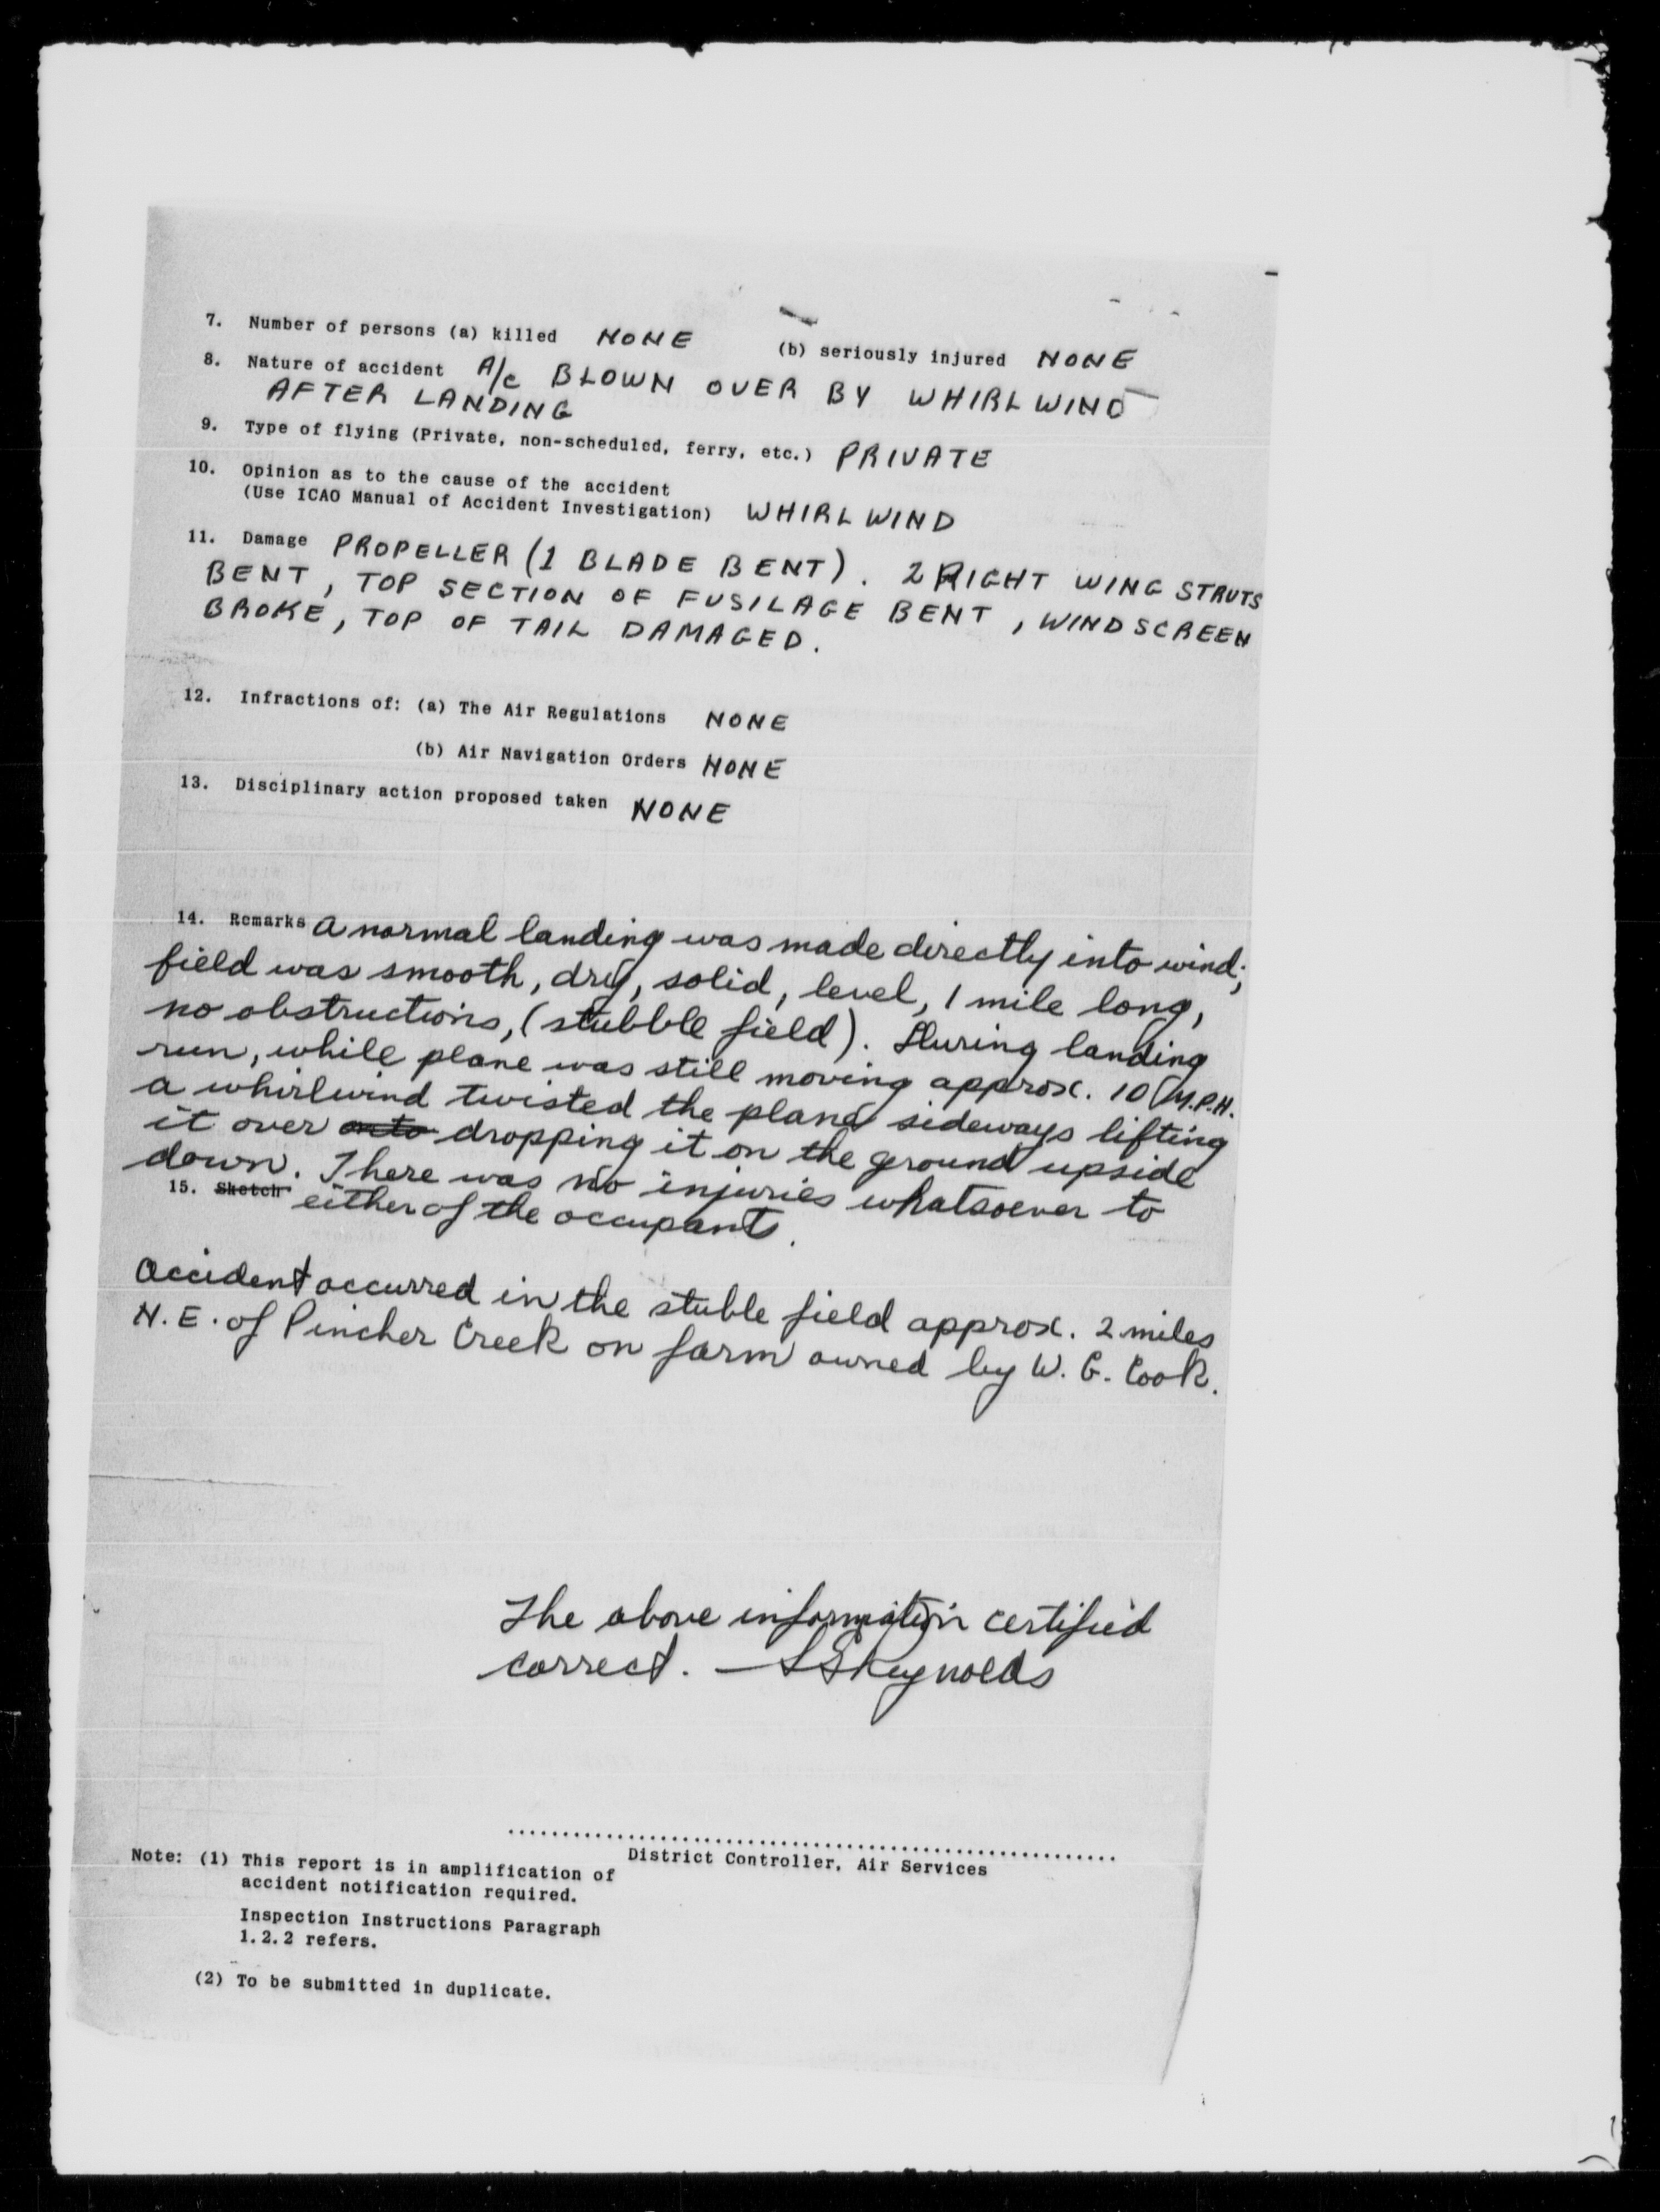 7. Number of persons (a) killed NONE (b) seriously injured NONE
8. Nature of accident A/c BLOWN OVER BY WHIRLWIND
AFTER LANDING
9. Type of flying (Private, non-scheduled, ferry, etc.) PRIVATE
10. Opinion as to the cause of the accident
(Use ICAO Manual of Accident Investigation) WHIRLWIND
11. Damage PROPELLER (1 BLADE BENT). 2 RIGHT WING STRUTS
BENT, TOP SECTION OF FUSILAGE BENT, WINDSCREEN
BROKE, TOP OF TAIL DAMAGED.
12. Infractions of: (a) The Air Regulations NONE
(b) Air Navigation Orders NONE
13. Disciplinary action proposed taken NONE
14. Remarks A normal landing was made directly into wind;
field was smooth, dry, solid, level, 1 mile long,
no obstructions, (stubble field). During landing
run, while plane was still moving approx. 10 M.P.H.
a whirlwind twisted the plane sideways lifting
it over onto dropping it on the ground upside
down. There was no injuries whatsoever to
15. Sketch either of the occupants.
Accident occurred in the stuble field approx. 2 miles
N.E. of Pincher Creek on farm owned by W. G. Cook.
The above information certified
correct. — S S Reynolds
District Controller, Air Services
Note: (1) This report is in amplification of
accident notification required.
Inspection Instructions Paragraph
1.2.2 refers.
(2) To be submitted in duplicate.